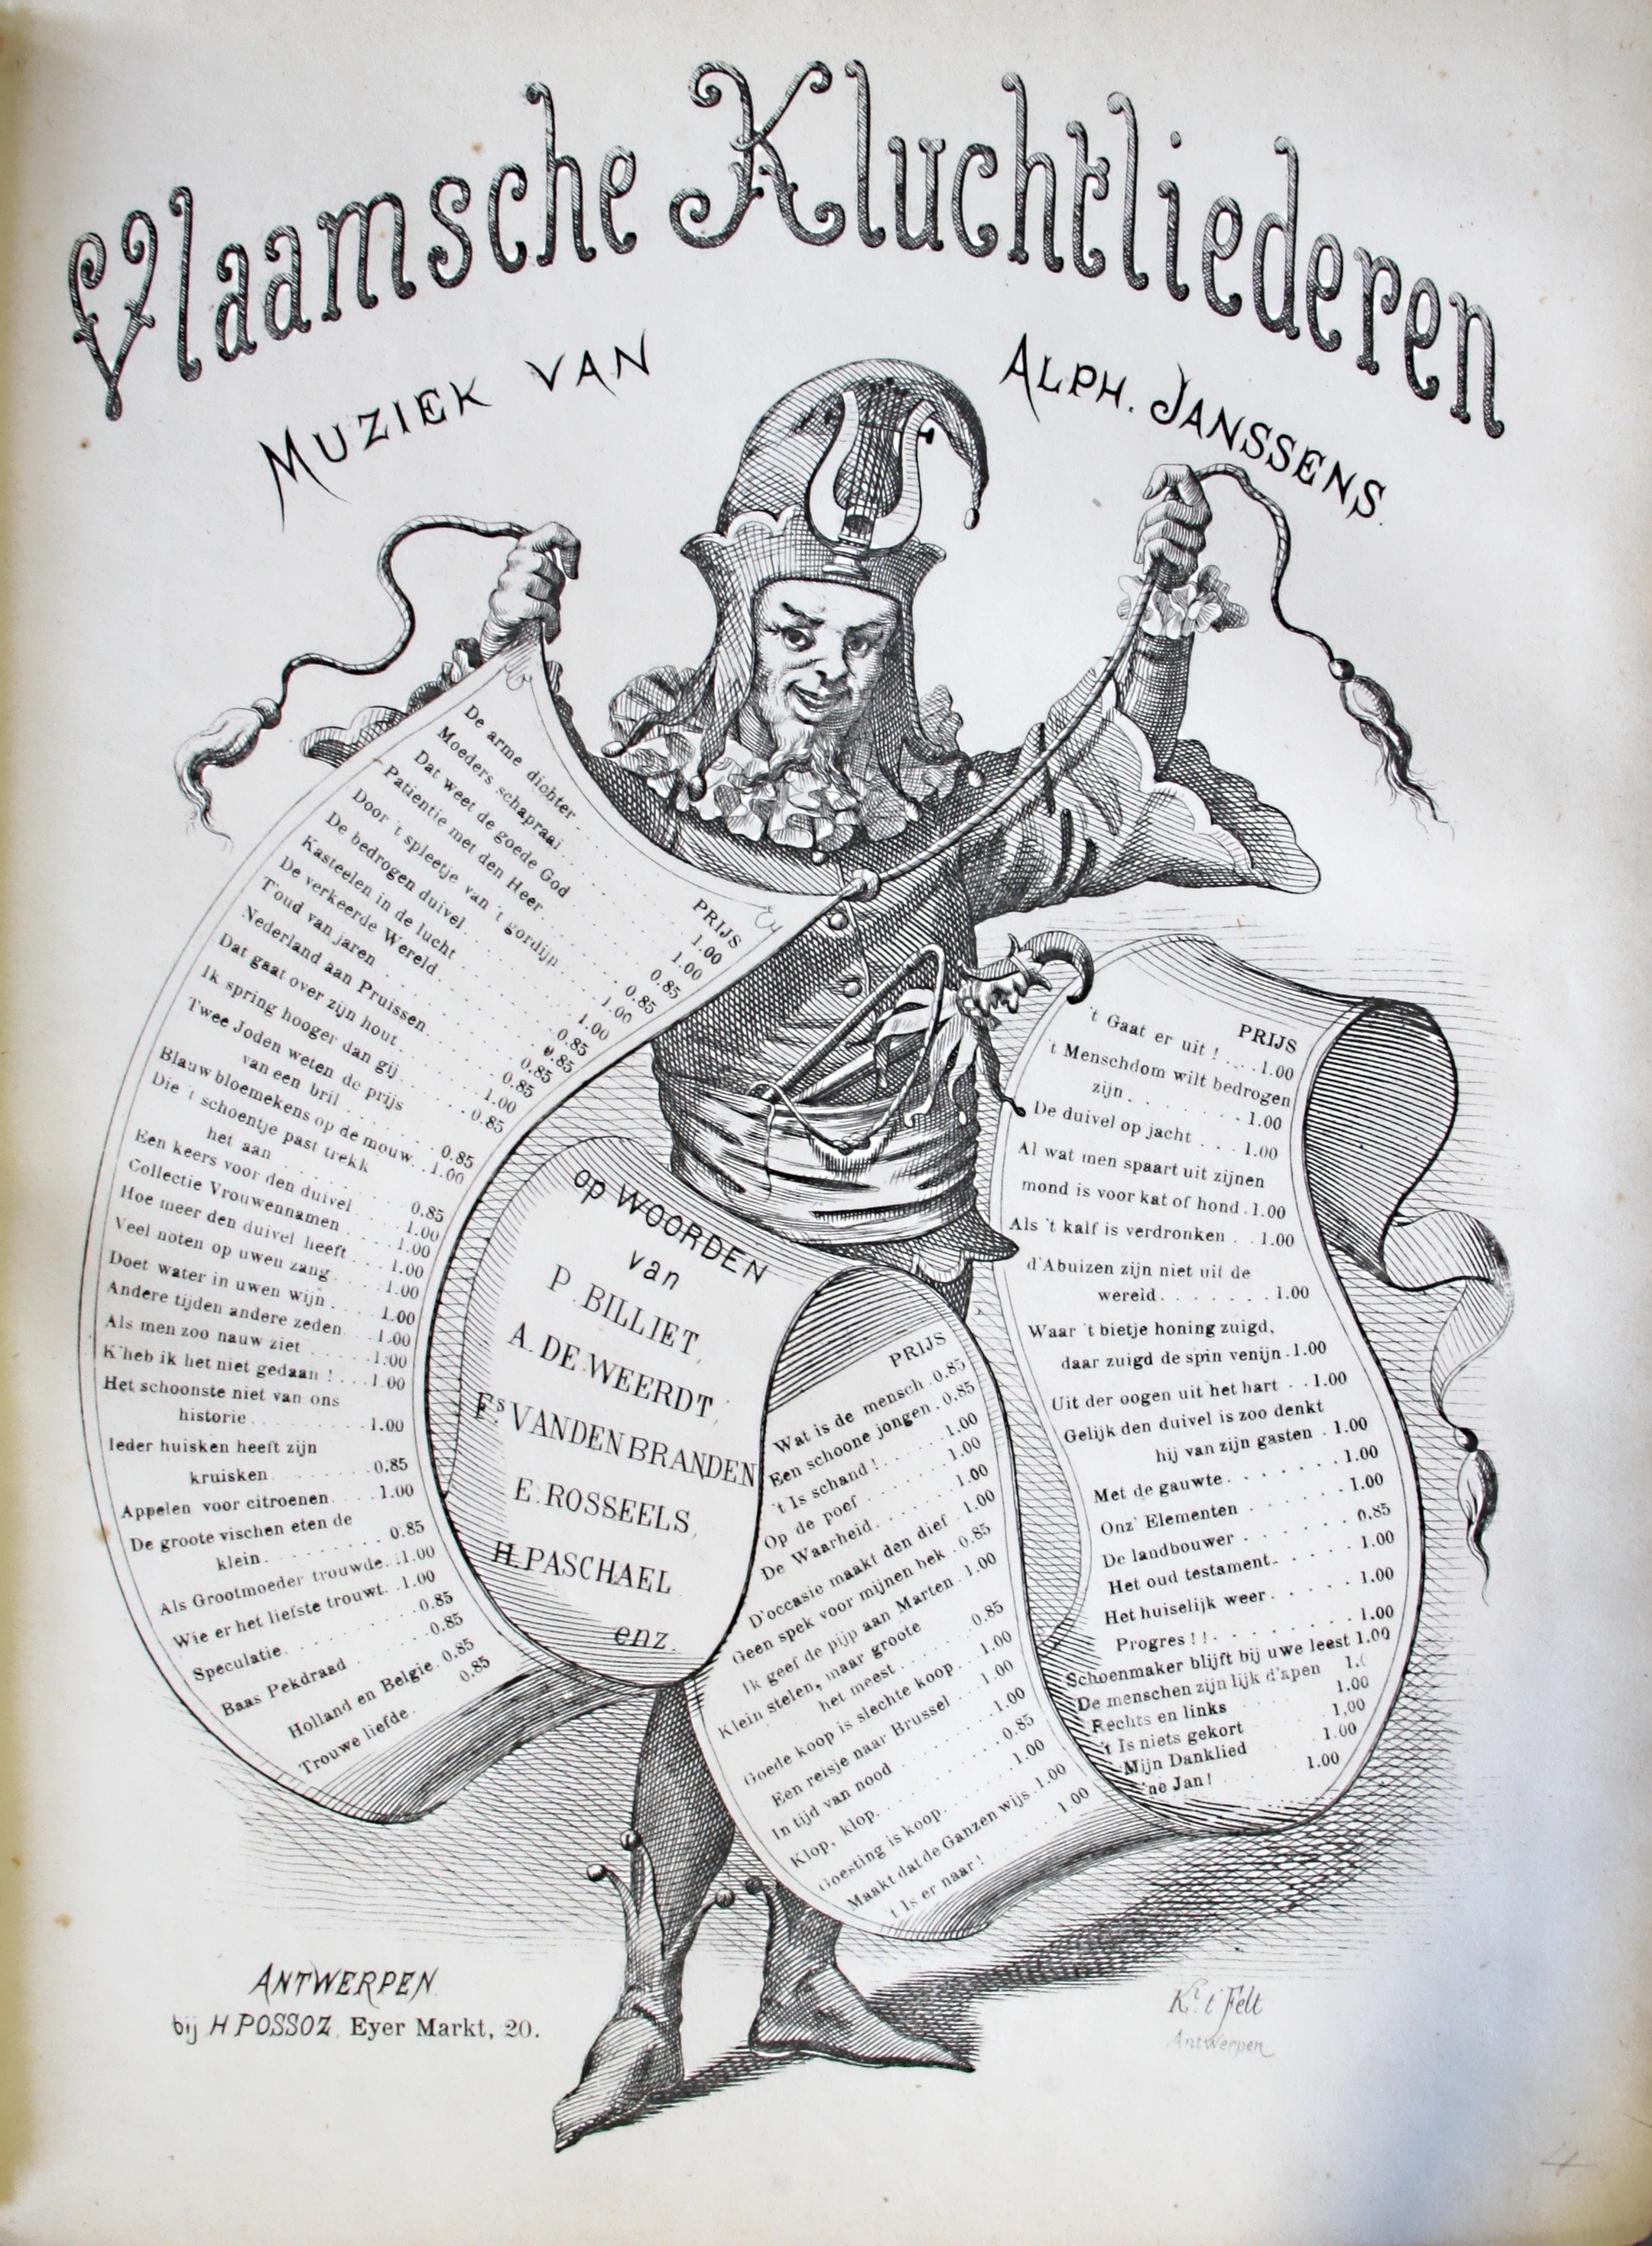 Vlaamsche Kluchtliederen
MUZIEK VAN ALPH. JANSSENS.
PRIJS
De arme dichter 1.00
Moeders schapraai 1.00
Dat weet de goede God 0.85
Patientie met den Heer 0.85
Door 't spleetje van 't gordijn 1.00
De bedrogen duivel 1.00
Kasteelen in de lucht 0.85
De verkeerde Wereld 0.85
T'oud van jaren 0.85
Nederland aan Pruissen 0.85
Dat gaat over zijn hout 1.00
Ik spring hooger dan gij 0.85
Twee Joden weten de prijs
van een bril 0.85
Blauw bloemekens op de mouw 1.00
Die 't schoentje past trekk
het aan 0.85
Een keers voor den duivel 1.00
Collectie Vrouwennamen 1.00
Hoe meer den duivel heeft 1.00
Veel noten op uwen zang 1.00
Doet water in uwen wijn 1.00
Andere tijden andere zeden 1.00
Als men zoo nauw ziet 1.00
K'heb ik het niet gedaan ! 1.00
Het schoonste niet van ons
historie 1.00
Ieder huisken heeft zijn
kruisken 0.85
Appelen voor citroenen 1.00
De groote vischen eten de
klein 0.85
Als Grootmoeder trouwde 1.00
Wie er het liefste trouwt 1.00
Speculatie 0.85
Baas Pekdraad 0.85
Holland en Belgie 0.85
Trouwe liefde 0.85
op WOORDEN
van
P. BILLIET,
A. DE WEERDT,
Fs VANDEN BRANDEN
E. ROSSEELS,
H. PASCHAEL
enz.
PRIJS
Wat is de mensch 0.85
Een schoone jongen 0.85
't Is schand ! 1.00
Op de poef 1.00
De Waarheid 1.00
D'occasie maakt den dief 1.00
Geen spek voor mijnen bek 0.85
Ik geef de pijp aan Marten 1.00
Klein stelen, maar groote
het meest 0.85
Goede koop is slechte koop 1.00
Een reisje naar Brussel 1.00
In tijd van nood 1.00
Klop, klop 0.85
Goesting is koop 1.00
Maakt dat de Ganzen wijs 1.00
't Is er naar ! 1.00
PRIJS
't Gaat er uit ! 1.00
't Menschdom wilt bedrogen
zijn 1.00
De duivel op jacht 1.00
Al wat men spaart uit zijnen
mond is voor kat of hond 1.00
Als 't kalf is verdronken 1.00
d'Abuizen zijn niet uit de
wereld 1.00
Waar 't bietje honing zuigd,
daar zuigd de spin venijn 1.00
Uit der oogen uit het hart 1.00
Gelijk den duivel is zoo denkt
hij van zijn gasten 1.00
Met de gauwte 1.00
Onz' Elementen 1.00
De landbouwer 0.85
Het oud testament 1.00
Het huiselijk weer 1.00
Progres ! ! 1.00
Schoenmaker blijft bij uwe leest 1.00
De menschen zijn lijk d'apen
Rechts en links 1.00
't Is niets gekort 1.00
Mijn Danklied 1.00
'ne Jan ! 1.00
ANTWERPEN
bij H POSSOZ, Eyer Markt, 20.
Kl. t' Felt
Antwerpen
4